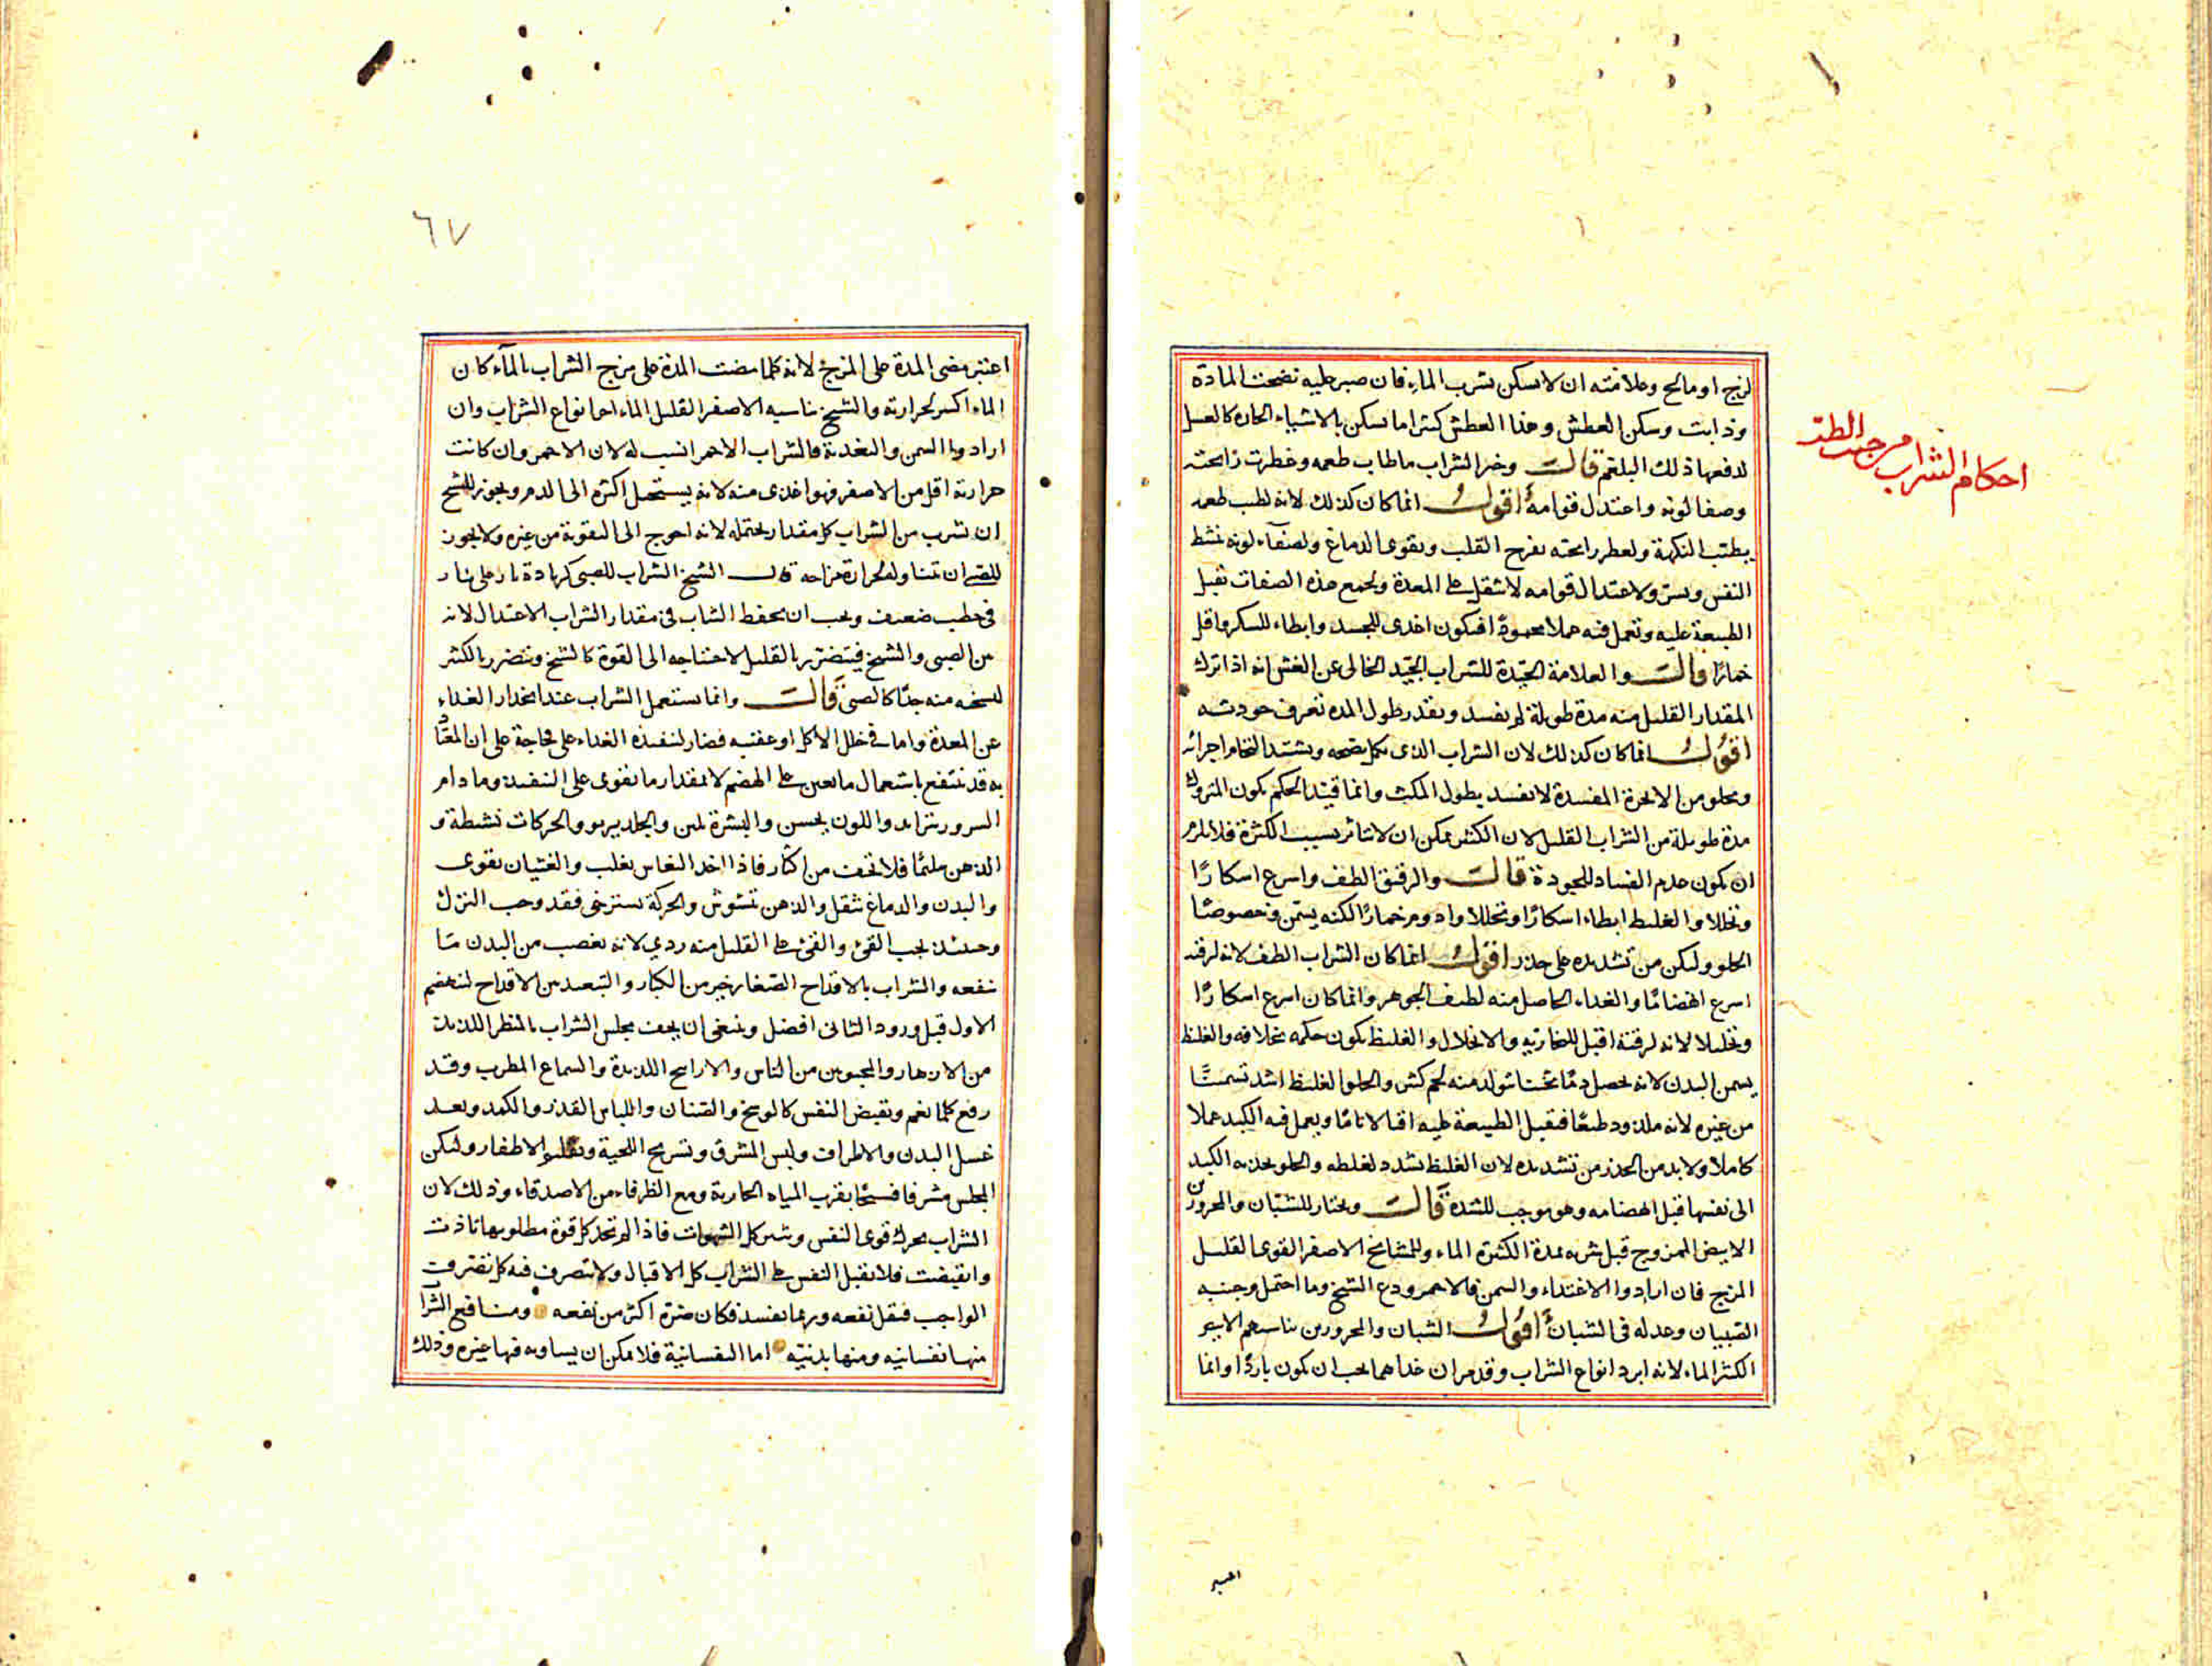 لزج او مالح وعلامته ان لا يسكن بشرب الماء فان صبر عليه نضجت المادة
وذابت وسكن العطش وهذا العطش كثيرا ما يسكن بالاشياء الحارة كالعسل
لدفعها ذلك البلغم قالت وخير الشراب ما طاب طعمه وعطرت رايحته
وصفا لونه واعتدل قوامه اقول انما كان كذلك لانه لطيب طعمه
يطيب النكهة ولعطر رايحته يفرح القلب ويقوى الدماغ ولصفاء لونه ينشط
النفس ويسر ولاعتدال قوامه لا يثقل على المعدة ولجمع هذه الصفات تقبل
الطبيعة عليه وتعمل فيه عملا محمودا فيكون اغذى للجسد وابطاء للسكر واقل
خمارا قالت والعلامة الجيدة للشراب الجيد الخالى عن الغش انه اذا ترك
المقدار القليل منه مدة طويلة لم يفسد وبقدر طول المدة تعرف جودته
اقول انما كان كذلك لان الشراب الذى يكمل نضجه ويشتد التحام اجزائه
ويخلو من الابخرة المفسدة لا يفسد بطول المكث وانما قيد الحكم بكون المتروك
مدة طويلة من الشراب القليل لان الكثير يمكن ان لا يتأثر بسبب الكثرة فلا يلزم
ان يكون عدم الفساد للجودة قالت والرقيق الطف واسرع اسكارًا
وتحللا والغليظ ابطاء اسكارًا وتحللا وادوم خمارًا لكنه يسمن وخصوصًا
الحلو وليكن من تشديده على حذر اقول انما كان الشراب الطف لانه لرقته
اسرع انهضامًا والغذاء الحاصل منه لطيف الجوهر وانما كان اسرع اسكارًا
وتحليلا لانه لرقته اقبل للبخارية والانحلال والغليظ يكون حكمه بخلافه والغليظ
يسمن البدن لانه يحصل دمًا متينا يتولد منه لحم كثير والحلو الغليظ اشد تسمينًا
من غيره لانه ملذوذ طبعًا فتقبل الطبيعة عليه اقبالا تامًا ويعمل فيه الكبد عملا
كاملا ولا بد من الحذر من تشديده لان الغليظ يشدد لغلظه والحلو يجذبه الكبد
الى نفسها قبل انهضامه وهو موجب للشدة قالت ويختار للشبان والمحرورين
الابيض الممزوج قبل شربه بمدة الكثيرة الماء وللمشايخ الاصفر القوى القليل
المزج فان ارادوا الاغتذاء والسمن فالاحمر ودع الشيخ وما احتمل وجنبه
الصبيان وعدله فى الشبان اقول الشبان والمحرورين يناسبهم الابيض
الكثير الماء لانه ابرد انواع الشراب وقد مر ان غذاهما يجب ان يكون باردًا وانما
احكام الشراب من جهة الطب
اعتبر
٦٧
اعتبر مضى المدة على المزج لانه كلما مضت المدة على مزج الشراب بالماء كان
الماء اكسر لحرارته والشيخ يناسبه الاصفر القليل الماء احد انواع الشراب وان
ارادوا السمن والتغذية فالشراب الاحمر انسب له لان الاحمر وان كانت
حرارته اقل من الاصفر فهو اغذى منه لانه يستحيل اكثره الى الدم ويجوز للشيخ
ان يشرب من الشراب كل مقدار يحتمله لانه احوج الى التقوية من غيره ولا يجوز
للصبى ان يتناوله لحرارة مزاجه قال الشيخ الشراب للصبى كزيادة نار على نار
فى حطب ضعيف ويجب ان يحفظ الشاب فى مقدار الشراب الاعتدال لانه
بين الصبى والشيخ فيتضرر بالقليل لاحتياجه الى القوة كالشيخ ويتضرر بالكثير
لتسخنه منه جدًا كالصبى قالت وانما يستعمل الشراب عند انحدار الغذاء
عن المعدة واما فى خلل الاكل او عقيبه فضار لتنفيذه الغذاء على فجاجة على ان المعتاد
به قد ينتفع باستعمال ما يعين على الهضم لا بمقدار ما يقوى على التنفيذ وما دام
السرور يتزايد واللون يحسن والبشرة تلين والجلد يربو والحركات نشطة و
الذهن سليمًا فلا تخف من اكثار فاذا اخذ النعاس يغلب والغثيان يقوى
والبدن والدماغ يثقل والذهن يتشوش والحركة تسترخى فقد وجب الترك
وحينئذ يجب القىء والقىء على القليل منه ردي لانه يغصب من البدن ما
ينفعه والشراب بالاقداح الصغار خير من الكبار والتبعيد بين الاقداح لينهضم
الاول قبل ورود الثانى افضل وينبغى ان يحف مجلس الشراب بالمنظر اللذيذة
من الازهار والمحبوبين من الناس والاراييح اللذيذة والسماع المطرب وقد
رفع كلما يغم ويقبض النفس كالوسخ والصنان واللباس القذر والكمد وبعد
غسل البدن والاطراف ولبس المشرق وتسريح اللحية وتقليم الاظفار وليكن
المجلس مشرفا فسيحًا بقرب المياه الجارية ومع الظرفاء من الاصدقاء وذلك لان
الشراب يحرك قوى النفس ويثير كل الشهوات فاذا لم تجد كل قوة مطلوبها تاذت
وانقبضت فلا تقبل النفس على الشراب كل الاقبال ولا تتصرف فيه كل تصرفه
الواجب فيقل نفعه وربما يفسد فكان ضرره اكثر من نفعه ومنافع الشرا
منها نفسانيه ومنها بدنيه اما النفسانية فلا يمكن ان يساويه فيها غيره وذلك